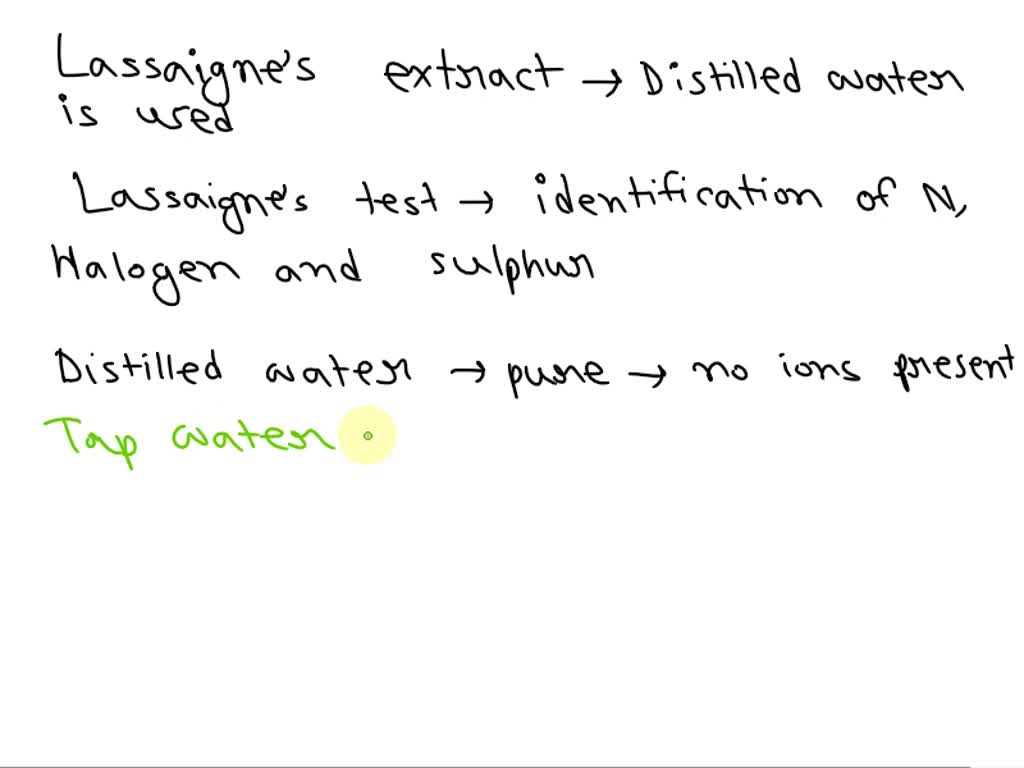 Lassaigne's extract → Distilled water
is used
Lassaigne's test → identification of N,
Halogen and sulphur
Distilled water → pure → no ions present
Tap water